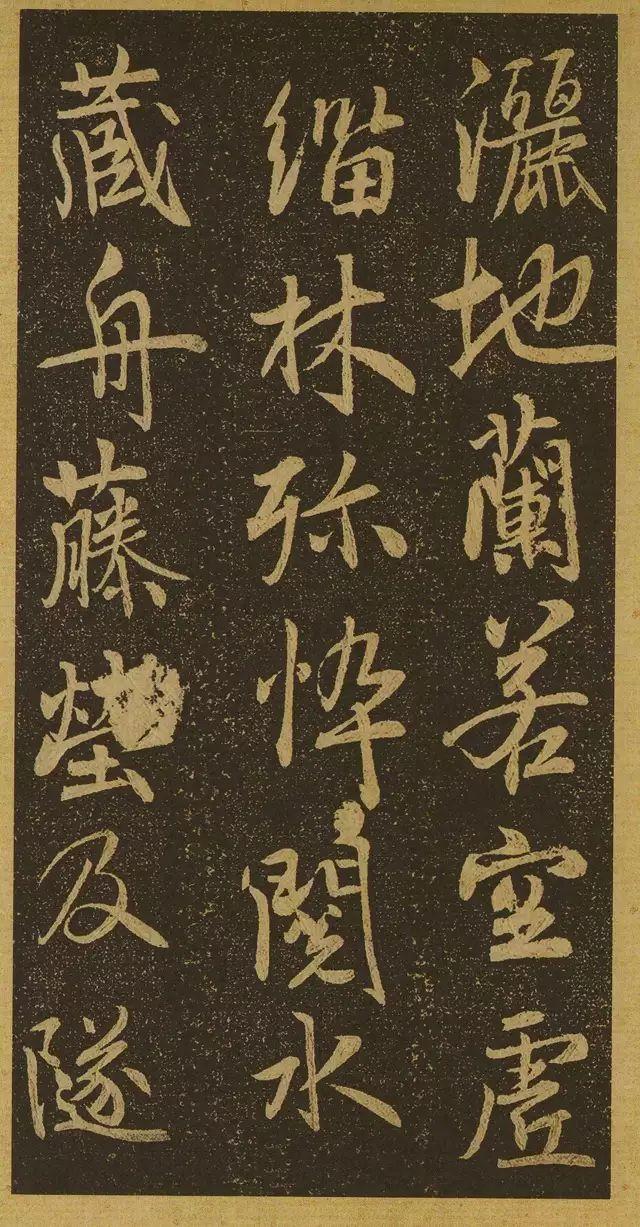 灑地蘭若空虛
緇林殄悴閱水
藏舟藤塋及隧